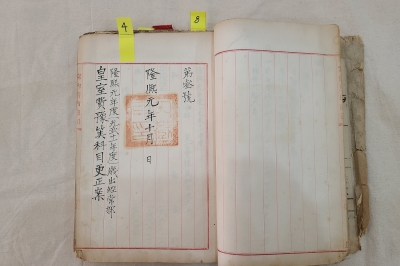 4
8
第壹號
隆熙元年十月 日
隆熙元年度(光武十一年度)歲出經常部
皇室費豫算科目更正案